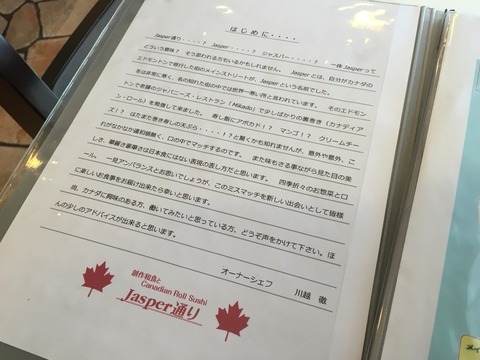 はじめに・・・・
Jasper通り・・・・? Jasper・・・・? ジャスパー・・・・? 一体 Jasperって
どういう意味? そう思われる方もいるかもしれません。 Jasperとは、自分がカナダの
エドモントンで修行した街のメインストリートが、Jasperという名前でした。
冬は非常に寒く、名の知れた街の中では世界一寒い所と言われています。 そのエドモン
トンで老舗のジャパニーズ・レストラン「Mikado」で少しばかりの裏巻き（カナディア
ン・ロール）を勉強して来ました。 寿し飯にアボカド!? マンゴ!? クリームチー
ズ!? はたまた巻き寿しの天ぷら・・・・!? と驚くかも知れませんが、意外や意外、こ
れがなかなか違和感無く、口の中でマッチするのです。 また味もさる事ながら見た目の美
しさ、華麗さ豪華さは日本食にはない表現の表し方だと思います。 四季折々のお惣菜とロ
ール、 一見アンバランスとお思いでしょうが、このミスマッチを新しい出会いとして皆様
に楽しいお食事をお届け出来たら幸いと思います。
尚、カナダに興味のある方、働いてみたいと思っている方、どうぞ声をかけて下さい。ほ
んの少しのアドバイスが出来ると思います。
オーナーシェフ 川越 徹
創作和食と
Canadian Roll Sushi
Jasper通り